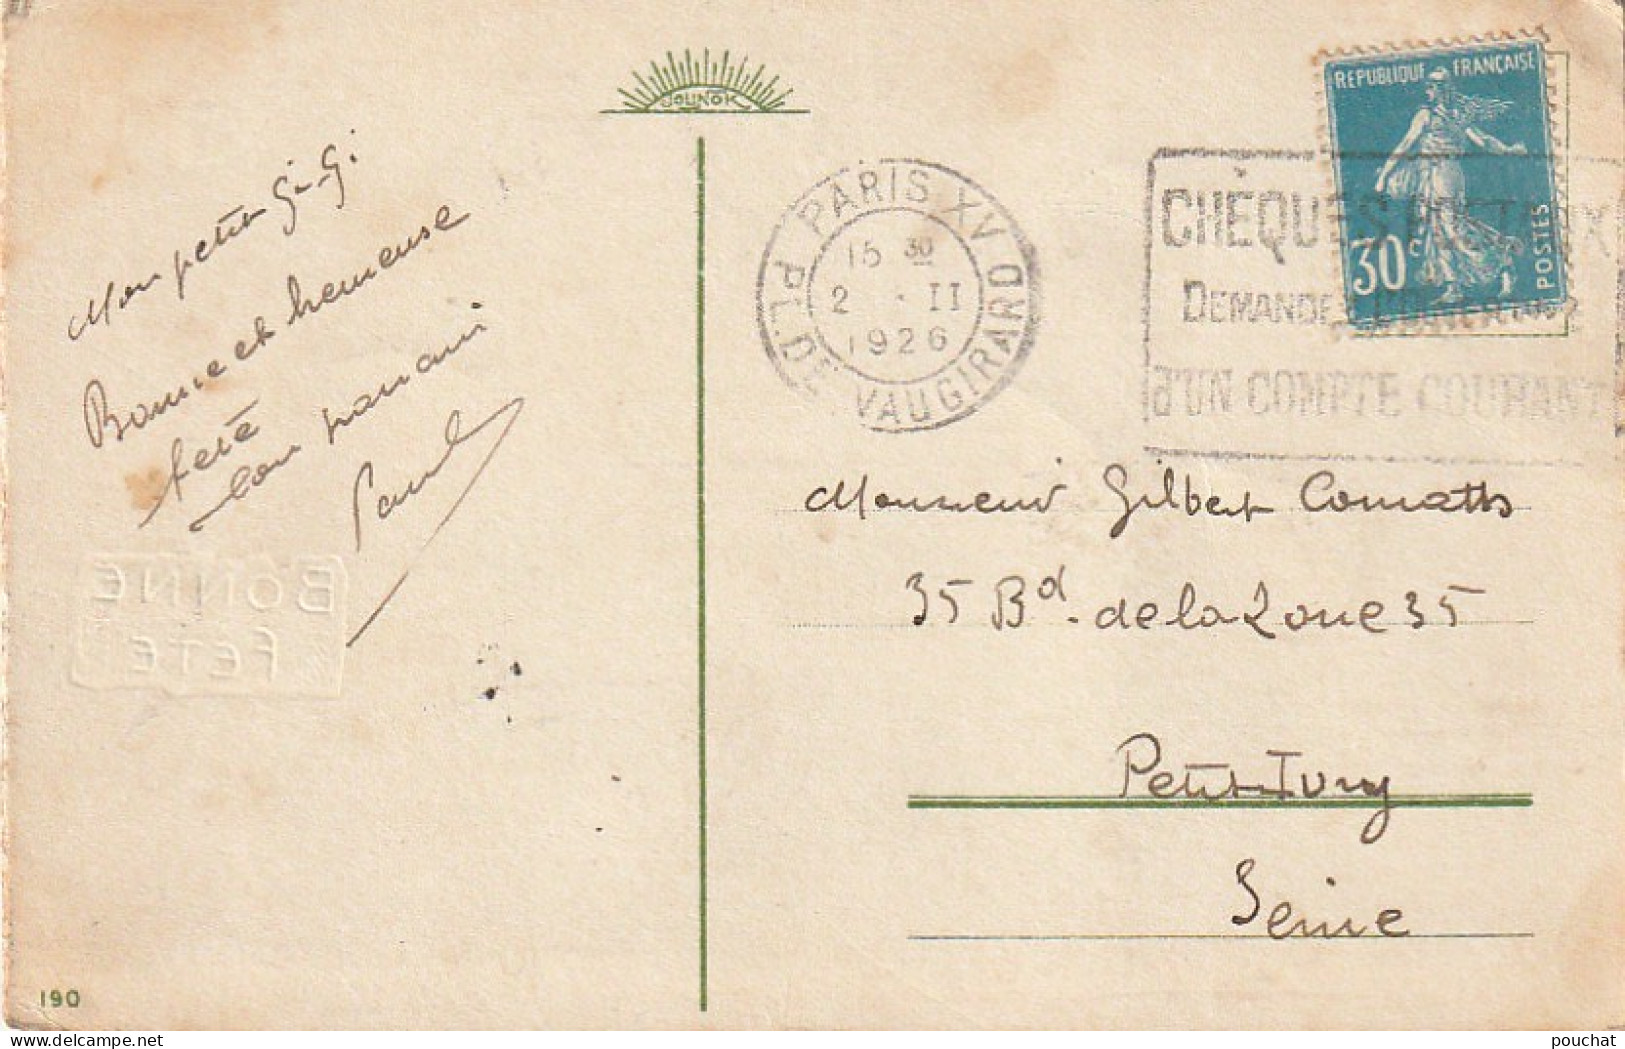 Mon petit Gi-Gi
Bonne et heureuse
fete
ton parrain
Paul
BONNE
FETE
190
PARIS XV
PL. DE VAUGIRARD
15 30
2 - II
1926
REPUBLIQUE FRANÇAISE
30c
POSTES
CHÈQUES POSTAUX
DEMANDEZ L'OUVERTURE
d'UN COMPTE COURANT
Monsieur Gilbert
35 Bd. de la Zone 35
Petit-Ivry
Seine
pouchat